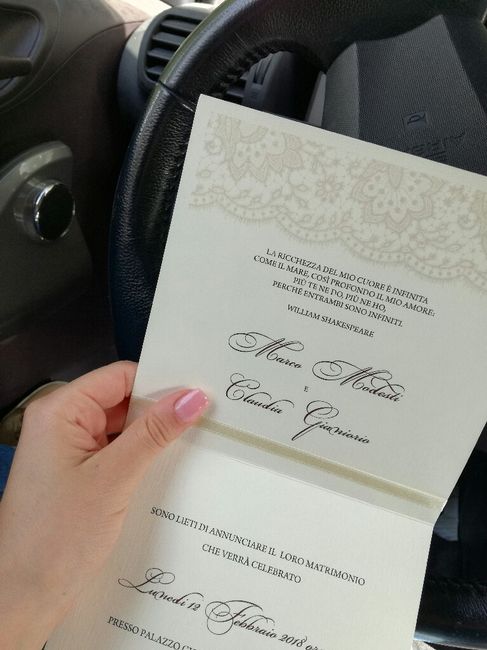 LA RICCHEZZA DEL MIO CUORE È INFINITA
COME IL MARE, COSÌ PROFONDO IL MIO AMORE:
PIÙ TE NE DO, PIÙ NE HO,
PERCHÉ ENTRAMBI SONO INFINITI.
WILLIAM SHAKESPEARE
Marco Modesti
E
Claudia Gianiorio
SONO LIETI DI ANNUNCIARE IL LORO MATRIMONIO
CHE VERRÀ CELEBRATO
Lunedì 12 Febbraio 2018 or
PRESSO PALAZZO